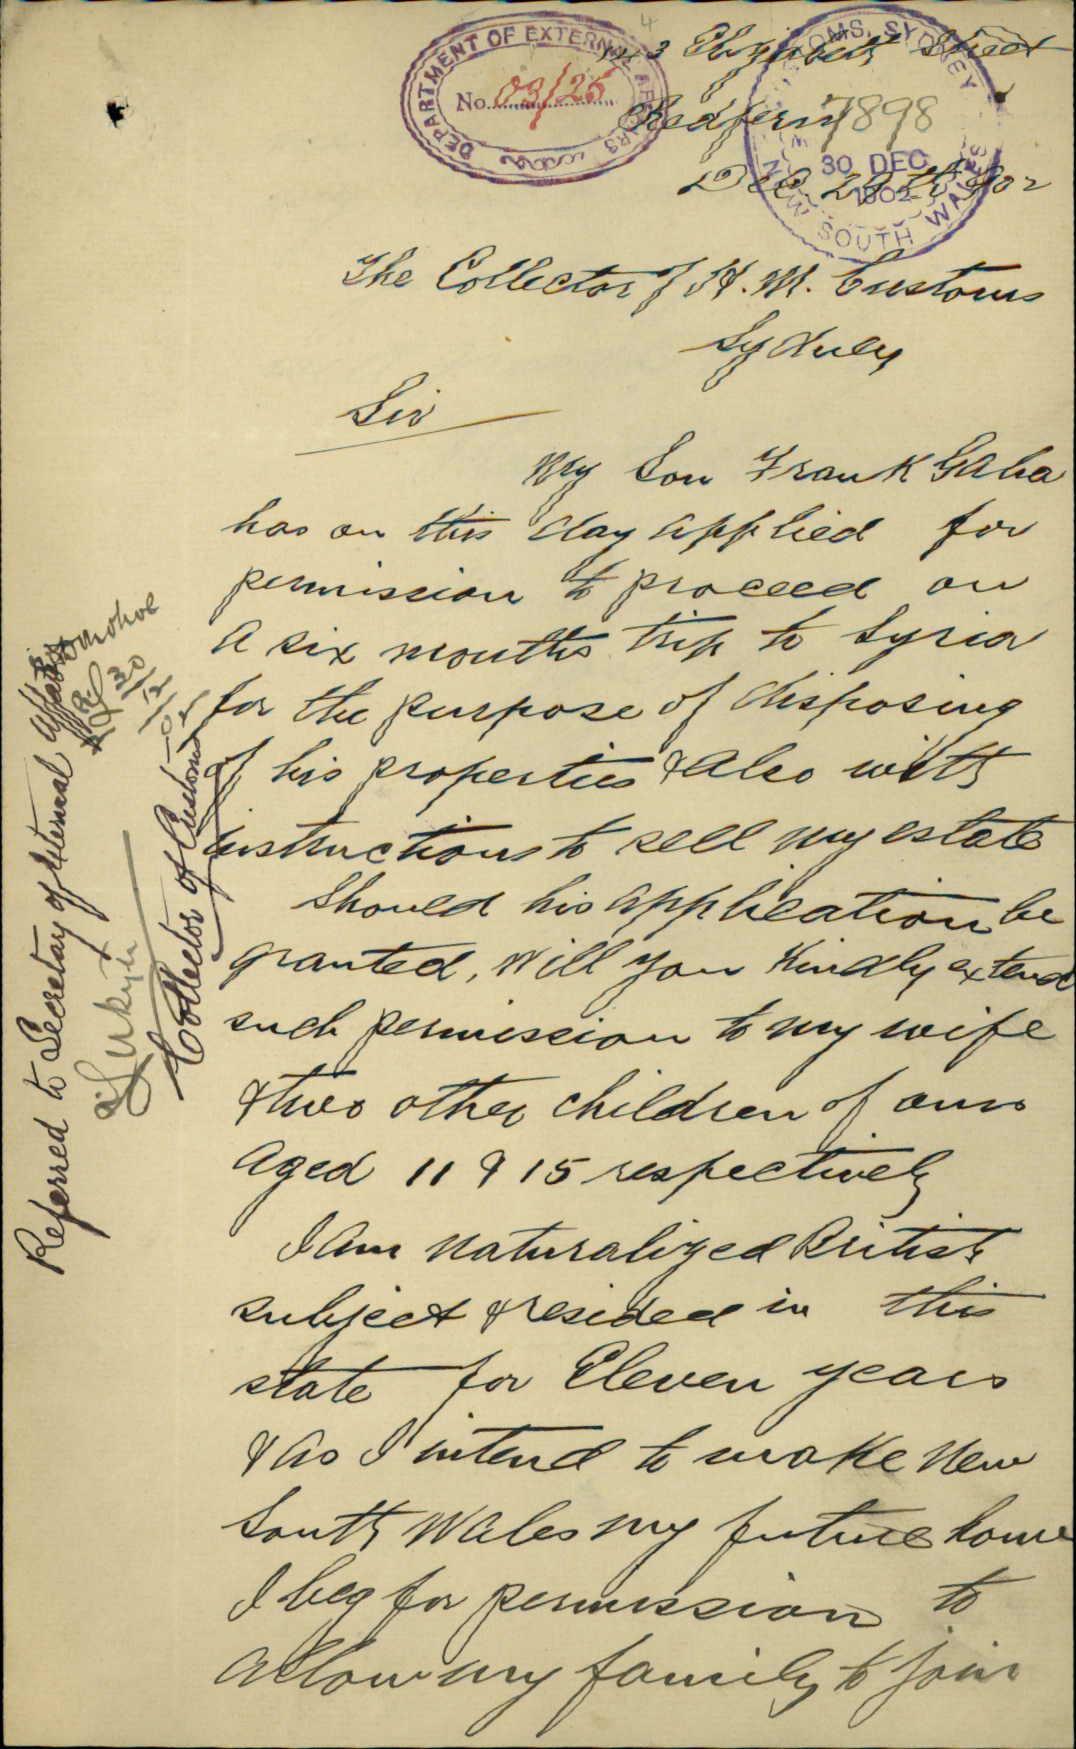 4
DEPARTMENT OF EXTERNAL AFFAIRS
No. 03/25
CUSTOMS, SYDNEY
NEW SOUTH WALES
30 DEC
1902
7898
3 Elizabeth Street
Redfern
Dec 29th 1902
The Collector of H. M. Customs
Sydney
Sir
My Son Frank Gaha
has on this day applied for
permission to proceed on
a six months trip to Syria
for the purpose of disposing
of his properties & also with
instructions to sell my estate
Should his application be
granted, will you kindly extend
such permission to my wife
& two other children of ours
aged 11 & 15 respectively
I am naturalized British
subject & resided in this
state for Eleven years
& as I intend to make New
South Wales my future home
I beg for permission to
allow my family to join
Referred to Secretary of External Affairs
Collector of Customs
30/12/02